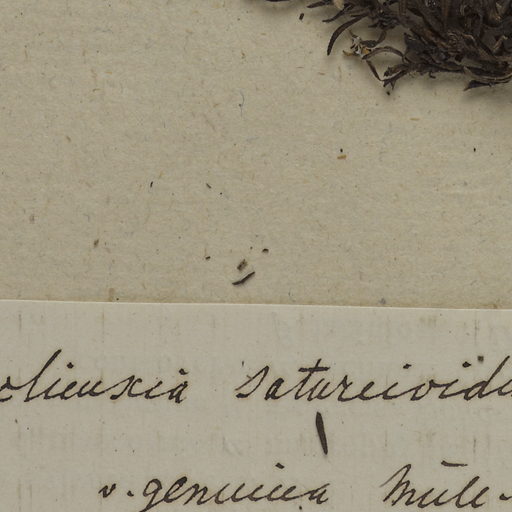 olieuxia satureioide
v. genuina Müll-